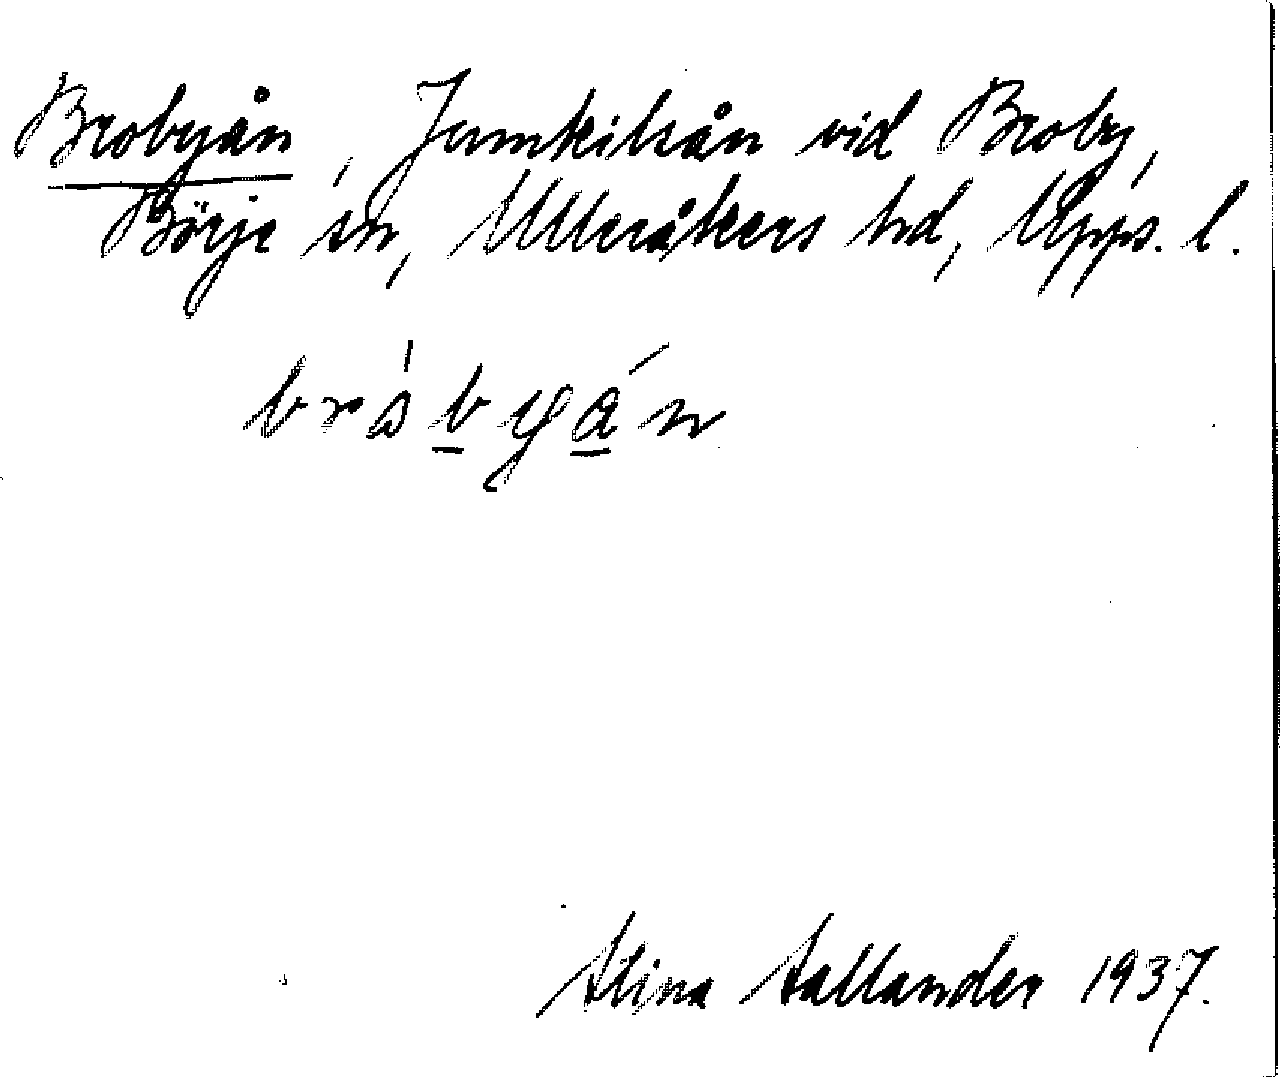 Brobyån, Jumkilsån vid Broby,
Börje sn, Ulleråkers hd, Upps. l.
bråbyån
Stina Sallander 1937.